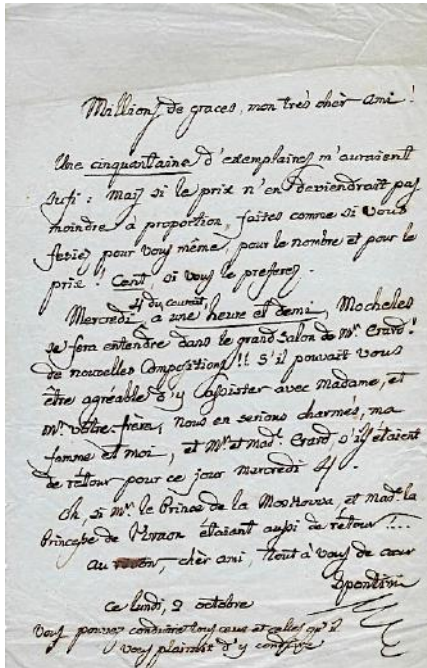 Millions de graces, mon très chèr ami !
Une cinquantaine d'exemplaires m'auraient
sufi : Mais si le prix n'en deviendrait pas
moindre à proportion, faites comme si vous
feriez pour vous même, pour le nombre et pour le
prix ! Cent, si vous le preferez.
4 du courant,
Mercredi, a une heure et demi, Mocheles
se fera entendre dans le grand salon de Mr. Erard !
de nouvelles Compositions !! S'il pouvait vous
être agréable d'y assister avec Madame, et
Mr. vôtre frère, nous en serions charmés, ma
famme et moi, et Mr. et Mad. Erard s'ils étaient
de rétour pour ce jour Mercredi 4.
Oh, si Mr. le Prince de la Moskowa, et Mad. la
Princesse de étaient aussi de rétour !...
au, chèr ami, tout à vous de cœur
Spontini
ce lundi, 2 octobre
Vous pouvez conduire tous ceux et celles qu'il
vous plairait d'y